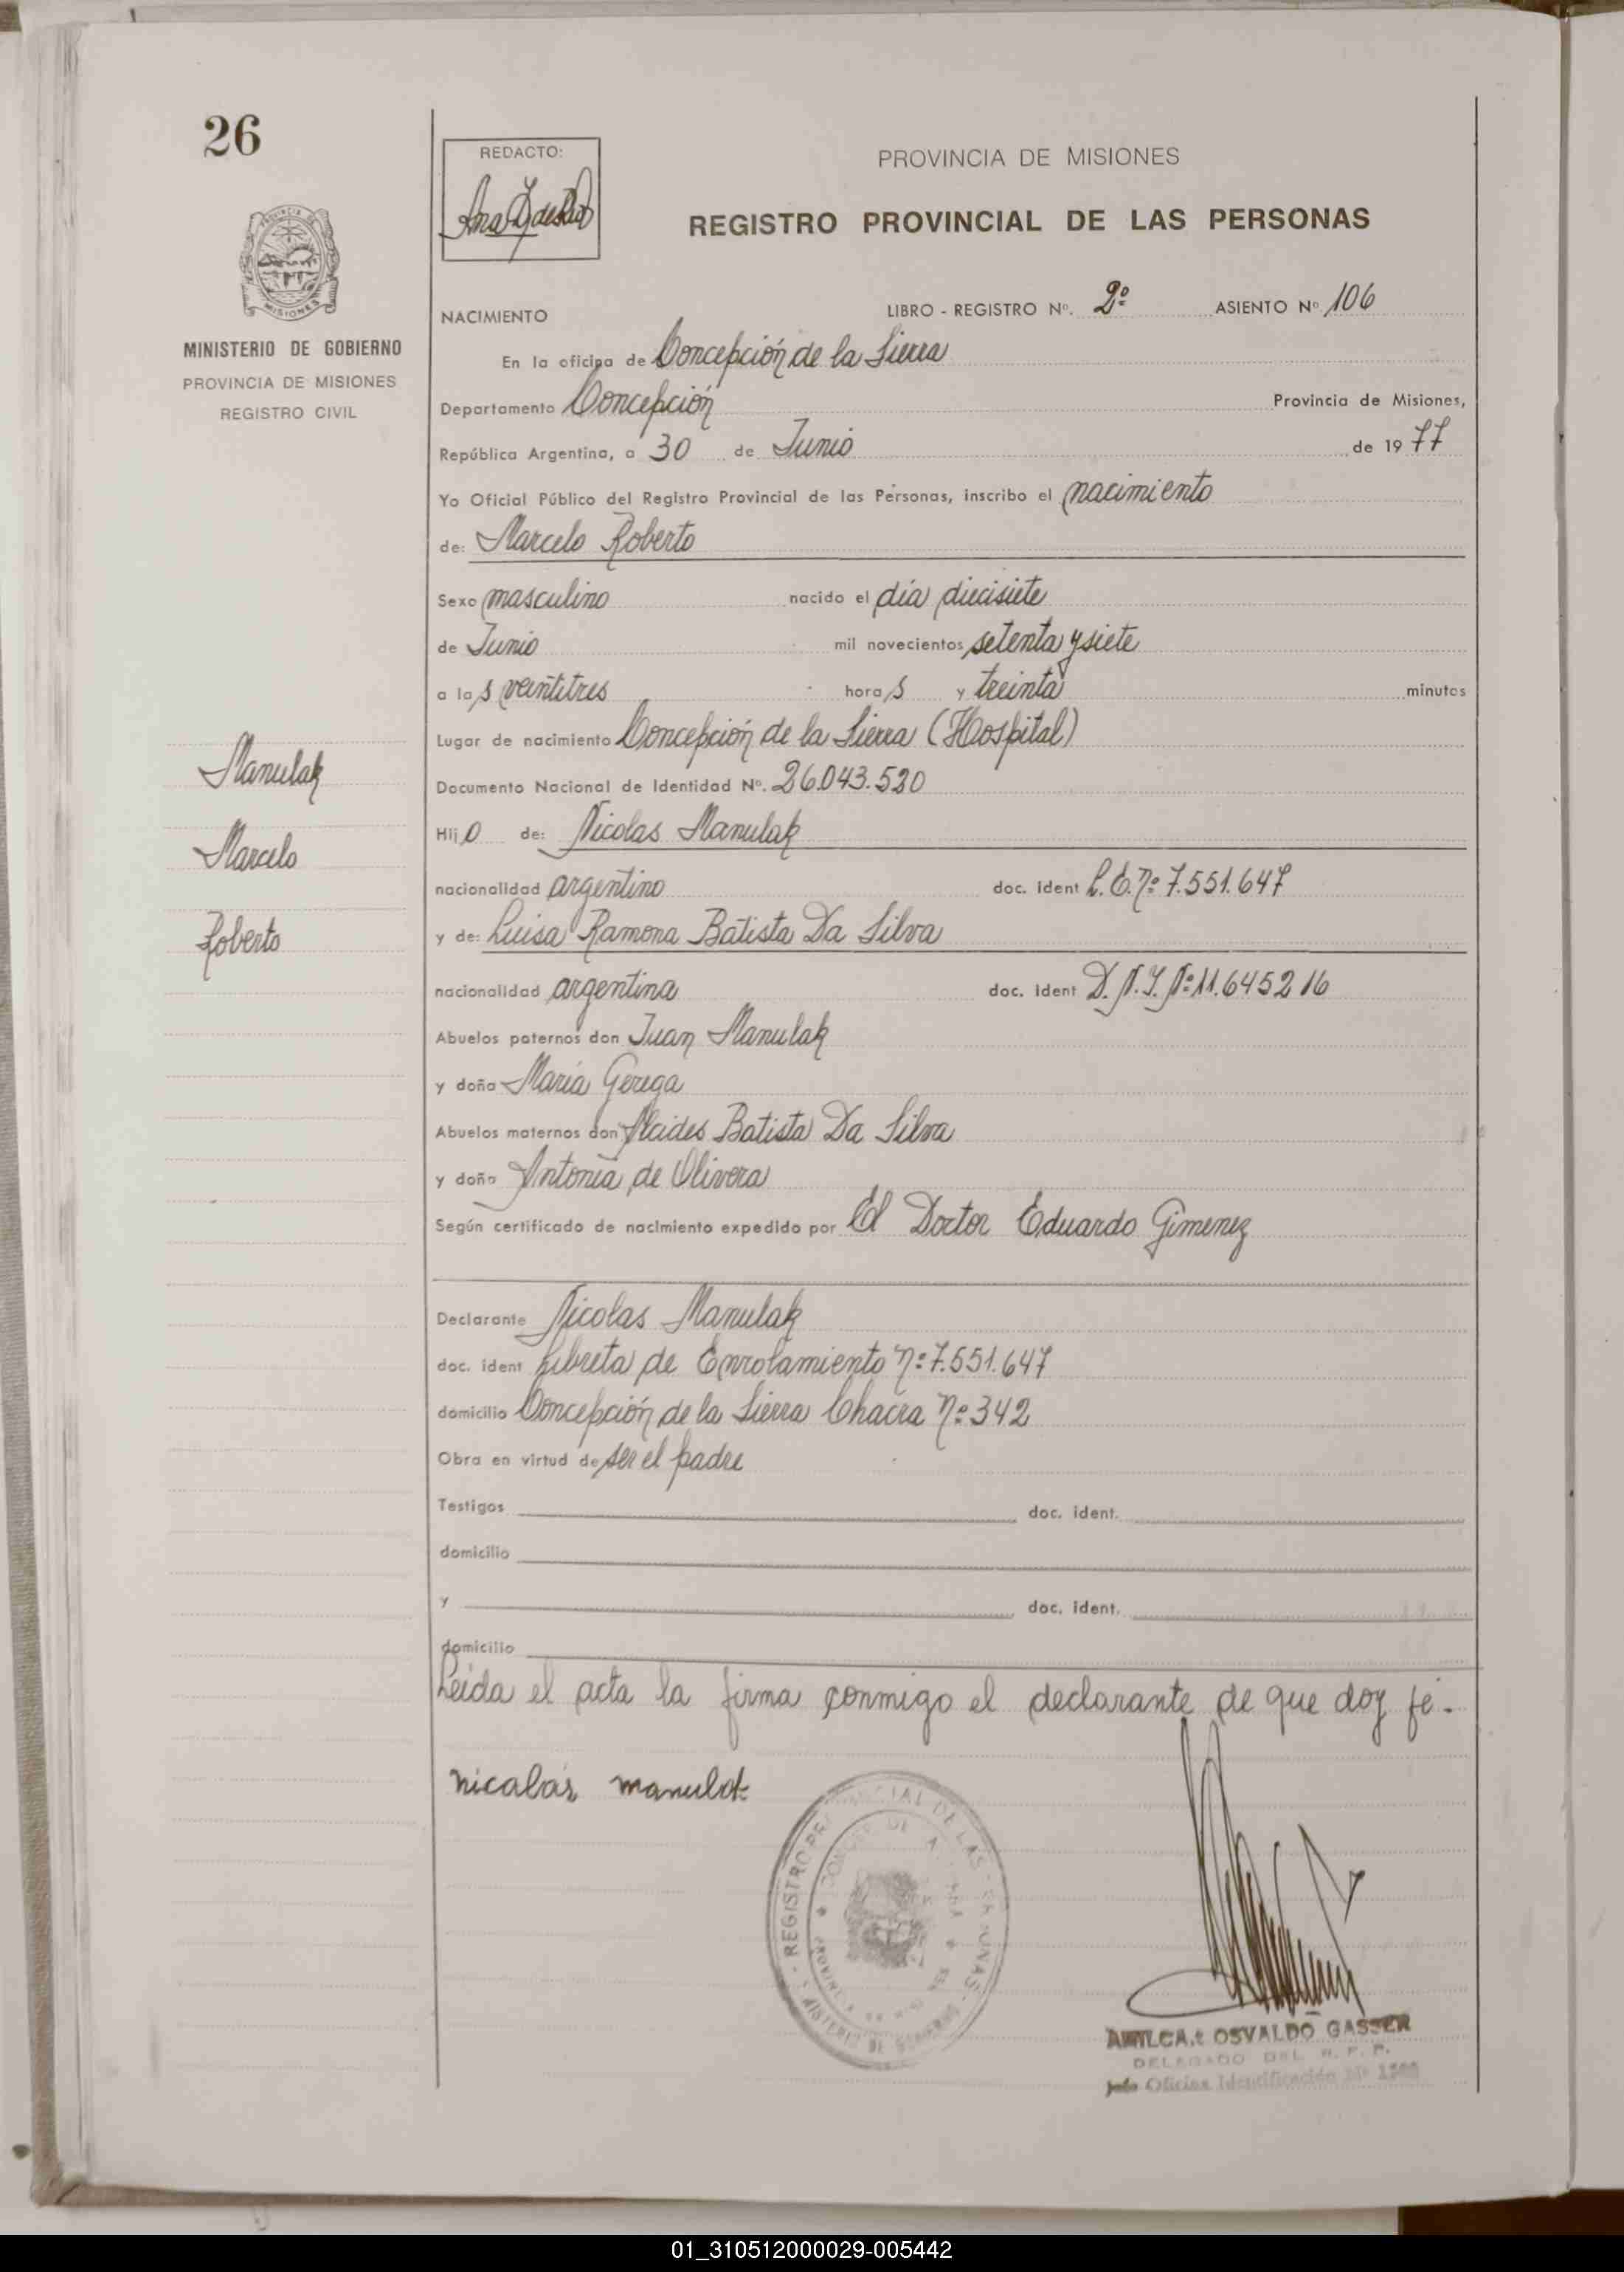 26
REDACTO:
PROVINCIA DE MISIONES
REGISTRO PROVINCIAL DE LAS PERSONAS
MISIONES
MINISTERIO DE GOBIERNO
PROVINCIA DE MISIONES
REGISTRO CIVIL
NACIMIENTO LIBRO - REGISTRO Nº. 2º ASIENTO Nº 106
En la oficina de Concepción de la Sierra
Departamento Concepción Provincia de Misiones,
República Argentina, a 30 de Junio de 1977
Yo Oficial Público del Registro Provincial de las Personas, inscribo el nacimiento
de: Marcelo Roberto
Sexo masculino nacido el día diecisiete
de Junio mil novecientos setenta y siete
a las veintitres horas y treinta minutos
Lugar de nacimiento Concepción de la Sierra (Hospital)
Documento Nacional de Identidad Nº. 26.043.520
Hijo de: Nicolas Manulak
nacionalidad argentino doc. ident L.E.nº 7.551.647
y de: Luisa Ramona Batista Da Silva
nacionalidad argentina doc. ident D.N.I. Nº 11.645216
Abuelos paternos don Juan Manulak
y doña Maria Gerega
Abuelos maternos don Alcides Batista Da Silva
y doña Antonia de Olivera
Según certificado de nacimiento expedido por El Doctor Eduardo Gimenez
Manulak
Marcelo
Roberto
Declarante Nicolas Manulak
doc. ident Libreta de Enrolamiento nº 7.551.647
domicilio Concepción de la Sierra Chacra nº 342
Obra en virtud de ser el padre
Testigos doc. ident.
domicilio
y doc. ident.
domicilio
Leída el acta la firma conmigo el declarante de que doy fé.
nicolás manulak
REGISTRO DE LAS
AMILCAR OSVALDO GASSER
DELEGADO DEL R. P. P.
Jefe Oficina Identificación Nº
01_310512000029-005442